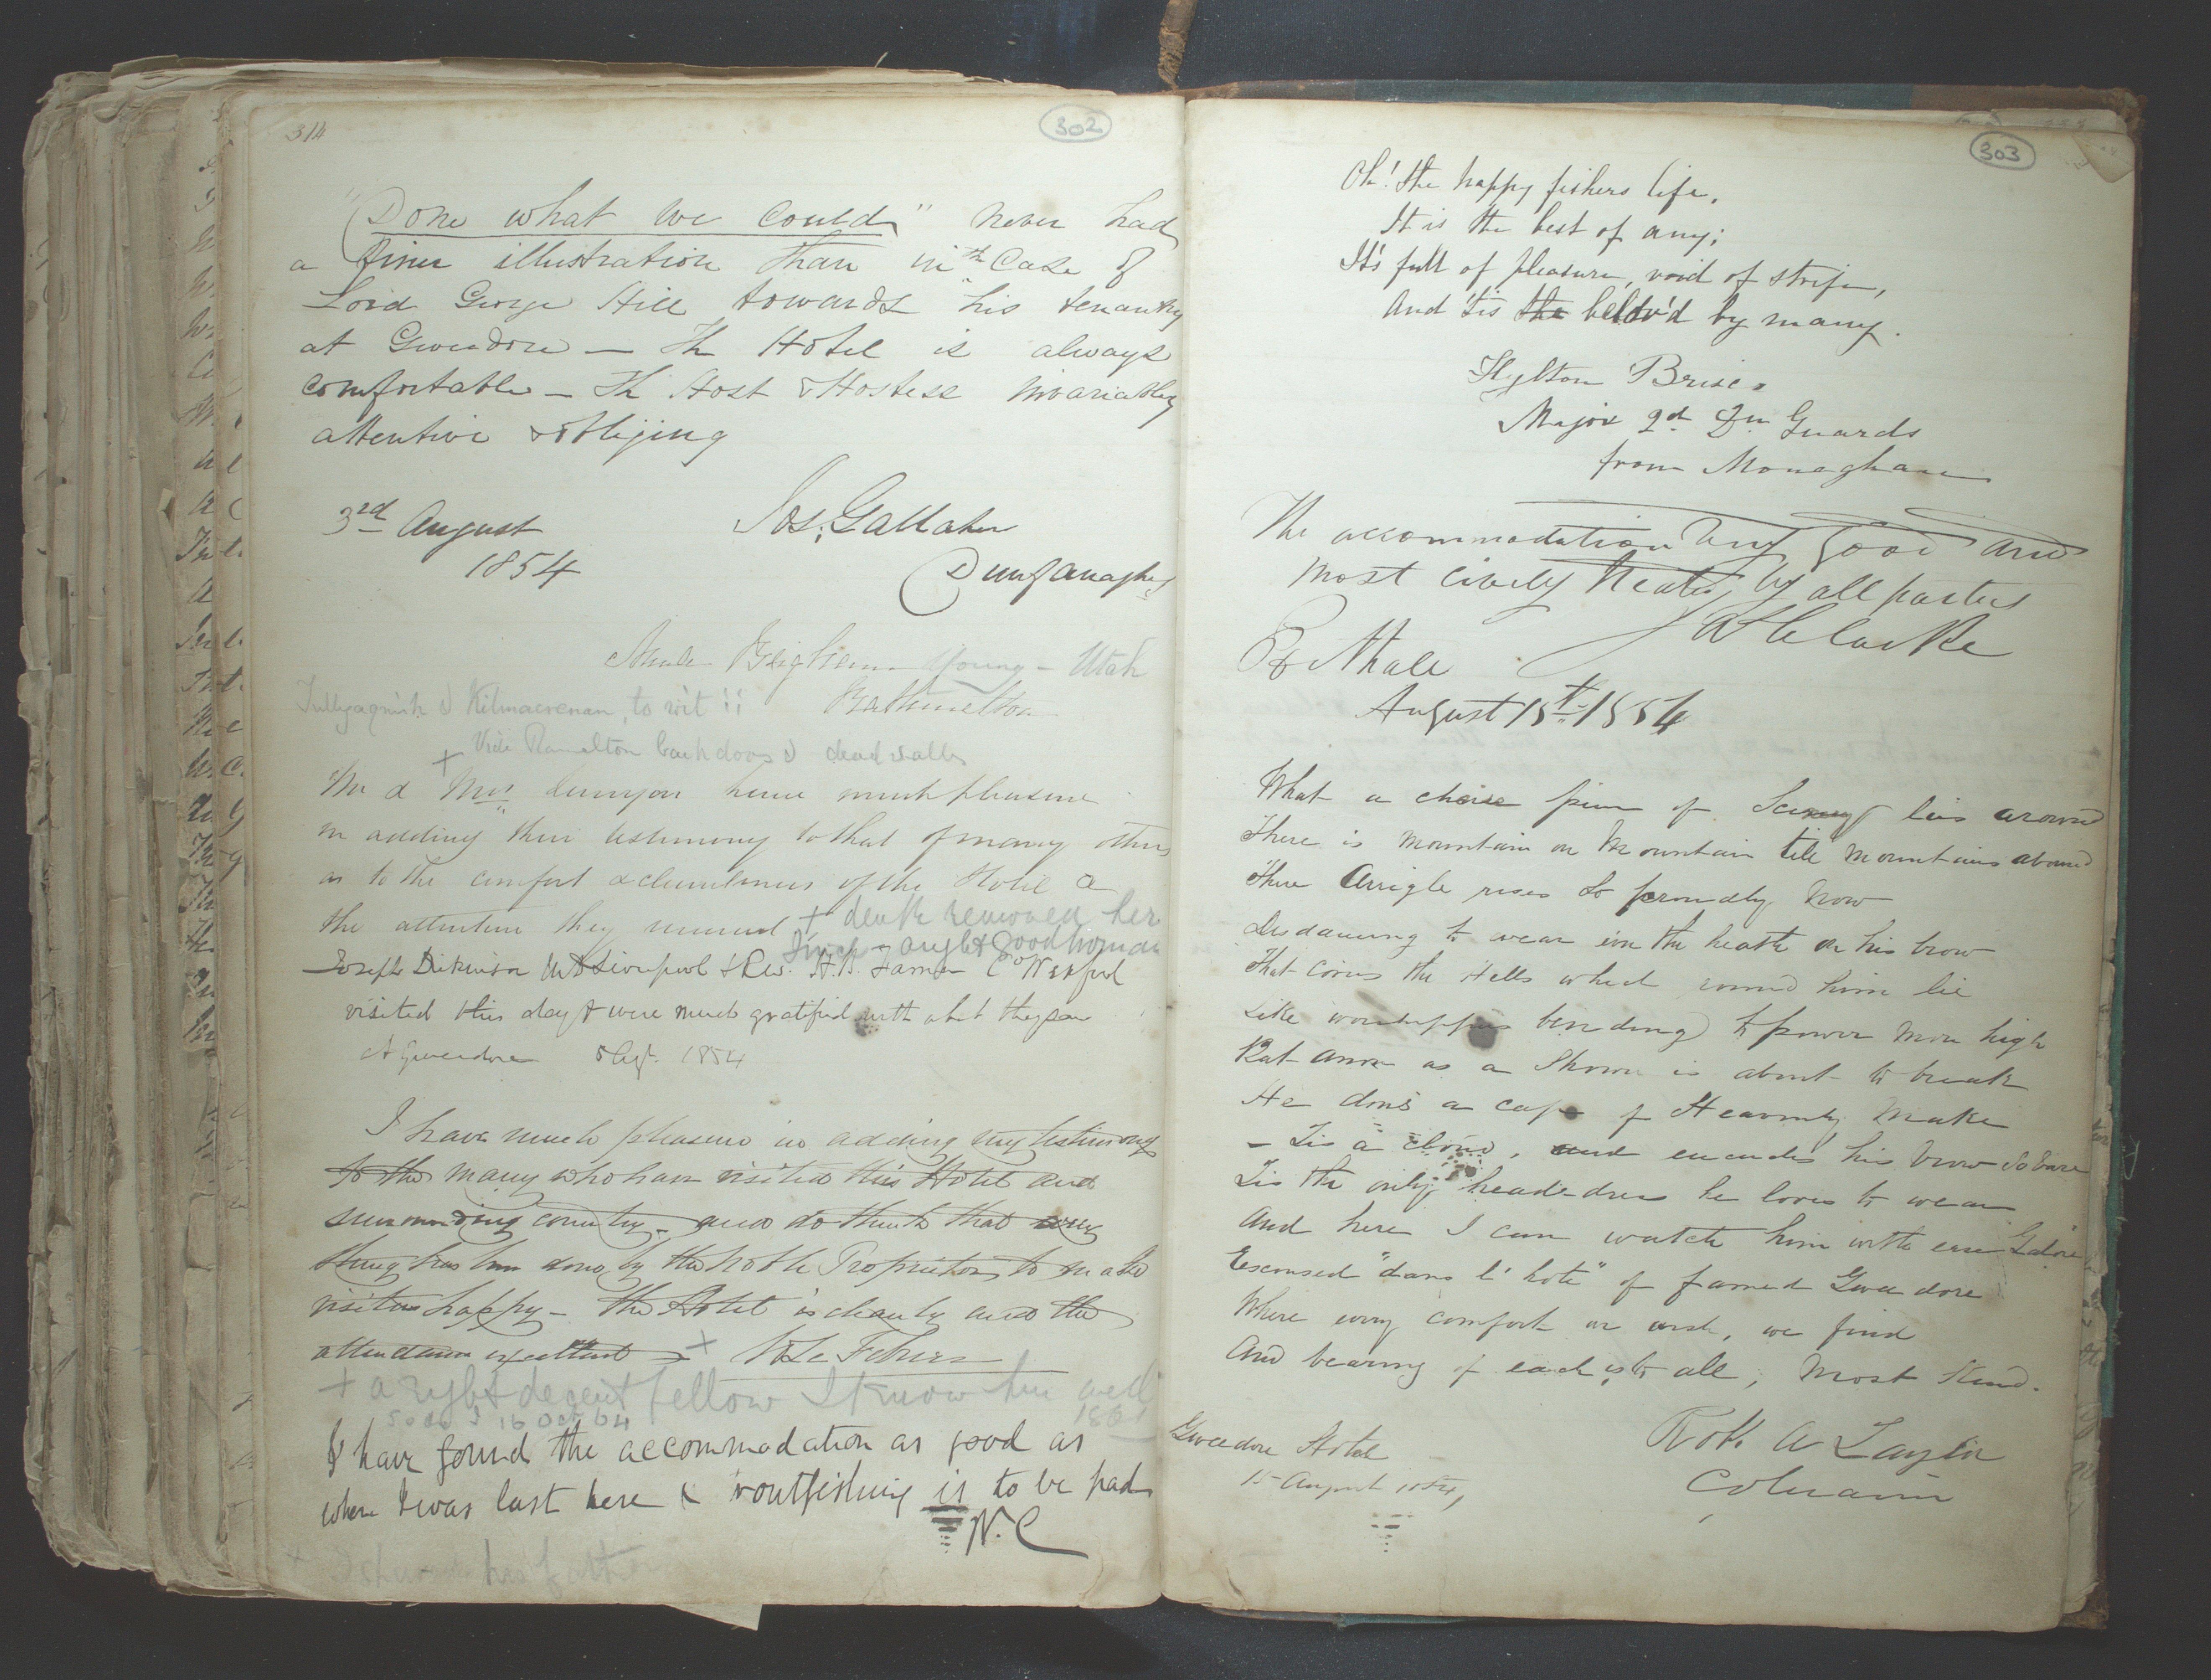 314
302
"Done what we could" never had
a finer illustration than in the Case of
Lord George Hill towards his tenantry
at Gweedore — The Hotel is always
comfortable — The Host & Hostess invariably
attentive & obliging
3rd August
1854
Jos. Gallaher
Dunfanaghy
Young — Utah
Kilmacrenan, to wit !!
Vide Ramelton back doors & dead walls
+
Mr & Mrs have much pleasure
in adding their testimony to that of many others
as to the comfort & cleanliness of the Hotel &
the attention they received
+ death removed her
since a right good woman
Joseph Dickinson MD Liverpool & Rev. H. Co Wexford
visited this day & were much gratified with what they saw
At Gweedore 8 Augt. 1854
I have much pleasure in adding my testimony
to the many who have visited this Hotel and
surrounding country and do think that every
thing has been done by the noble Proprietor to make
visitors happy — The Hotel is cleanly and the
attendance excellent +
+ a right decent fellow I know him well
1861
16 Oct 64
I have found the accommodation as good as
when I was last here & troutfishing is to be had
W. C
his father
303
Oh! the happy fishers life,
It is the best of any;
It's full of pleasure, void of strife,
And 'tis the belov'd by many.
Hylton Brisco
Major 2d Dn Guards
from Monaghan
The accommodation very good and
most civily treated by all parties
Clarke
August 15th 1854
What a choise piece of Scenery lies around
There is mountain on Mountain till mountains abound
There Arrigle rises so proudly now
Disdaining to wear e'en the heath on his brow
That covers the Hills which round him lie
Like worshippers bending to power more high
But anon as a Storm is about to break
He dons a cap of Heavenly make
— Tis a cloud, and encircles his brow so bare
Tis the only headdress he loves to wear
And here I can watch him with ease Galore
Esconsed "dans l' hote" of famed Gweedore
Where every comfort we wish, we find
And bearing of each is to all, most Kind.
Gweedore Hotel
15 August 1854
Robt A Taylor
Coleraine